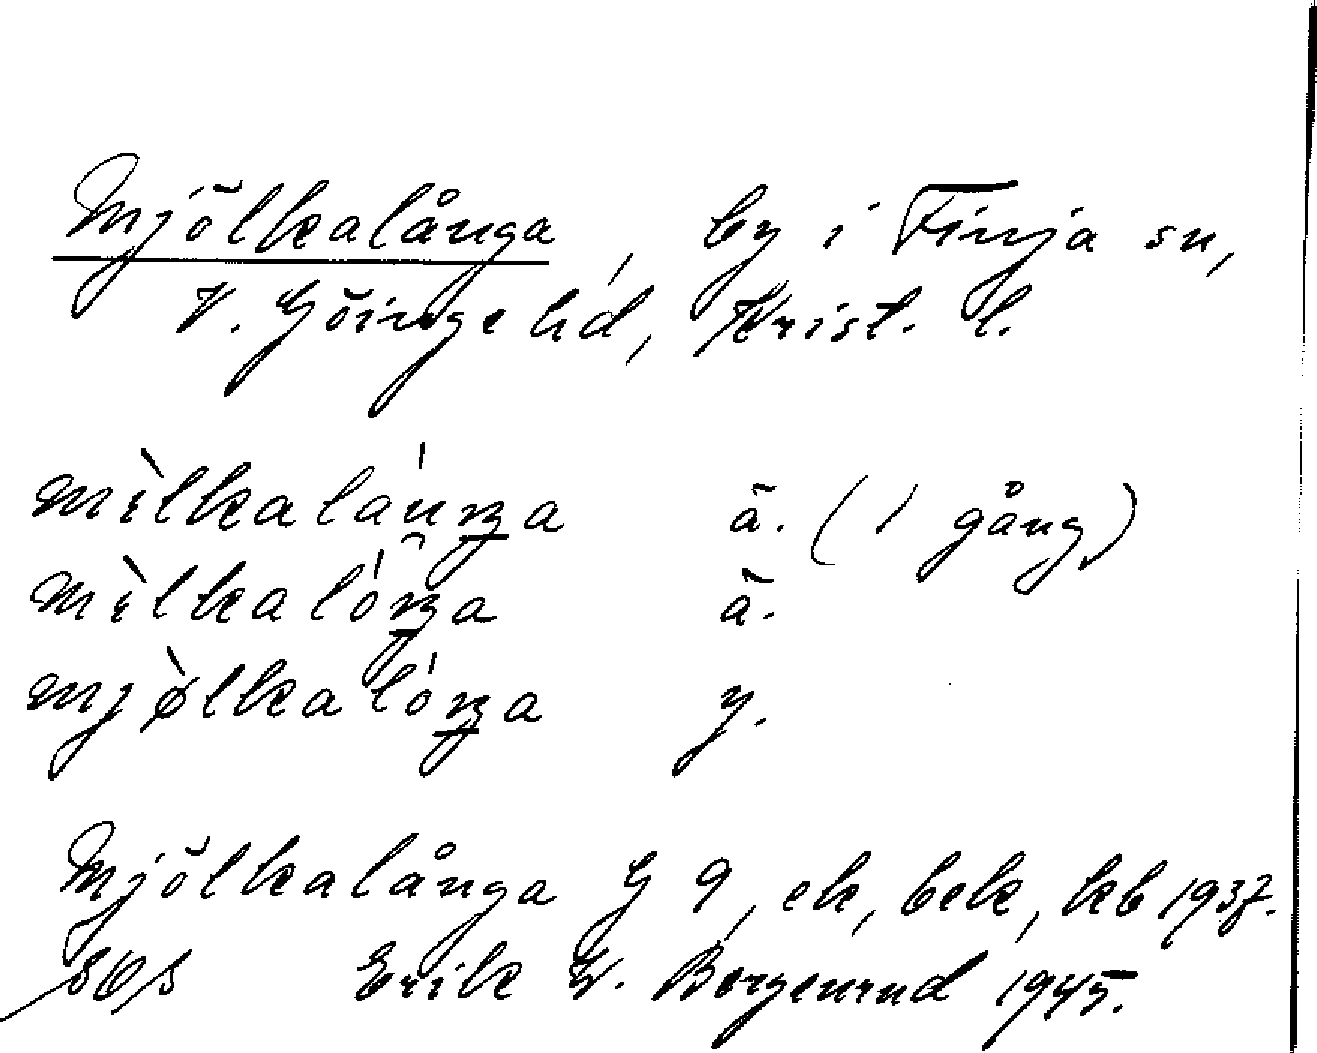 Mjölkalånga, by i Finja sn,
V. Göinge hd, Krist. l.
mìlkaláŋga ä. (1 gång)
mìlkalóŋga ä.
mjø̀lkalóŋga y.
Mjölkalånga G 9, ek, bek, kb 1937.
SOS Erik W. Borgenrud 1945.